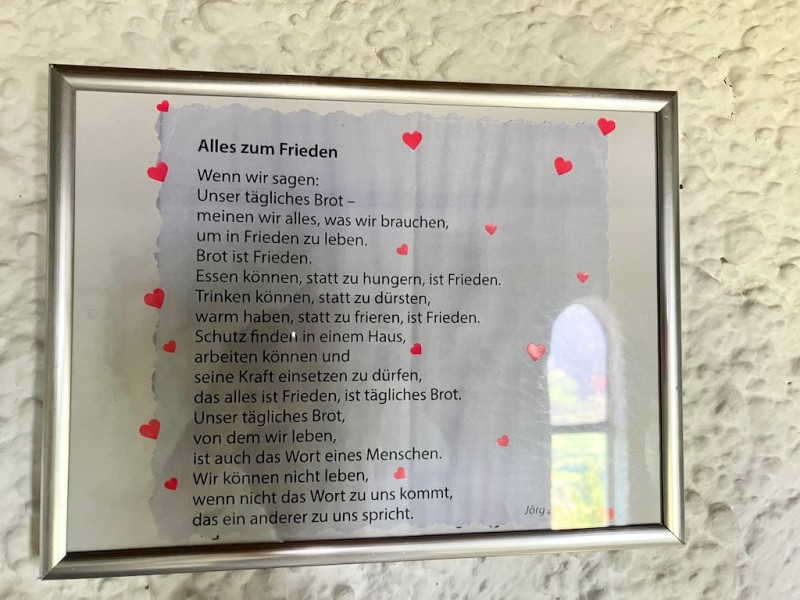 Alles zum Frieden
Wenn wir sagen:
Unser tägliches Brot –
meinen wir alles, was wir brauchen,
um in Frieden zu leben.
Brot ist Frieden.
Essen können, statt zu hungern, ist Frieden.
Trinken können, statt zu dürsten,
warm haben, statt zu frieren, ist Frieden.
Schutz finden in einem Haus,
arbeiten können und
seine Kraft einsetzen zu dürfen,
das alles ist Frieden, ist tägliches Brot.
Unser tägliches Brot,
von dem wir leben,
ist auch das Wort eines Menschen.
Wir können nicht leben,
wenn nicht das Wort zu uns kommt,
das ein anderer zu uns spricht.
Jörg